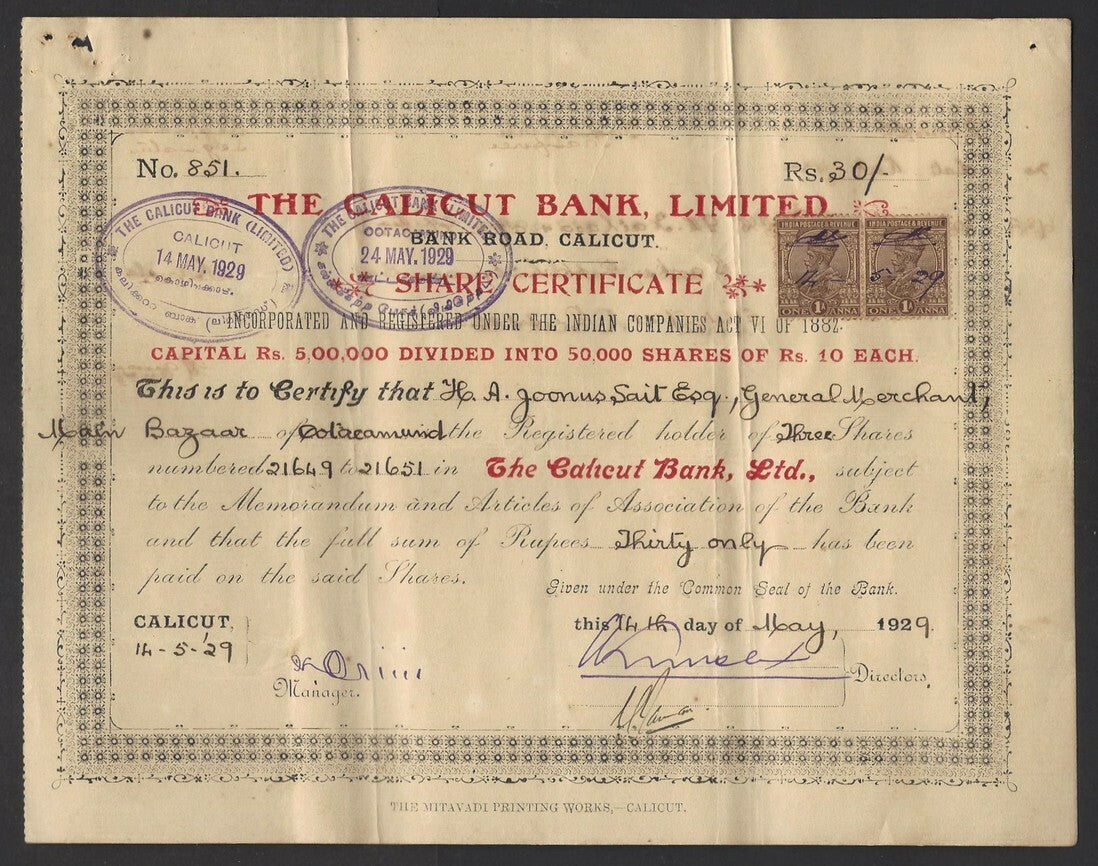 No. 851.
Rs. 30/-
THE CALICUT BANK, LIMITED
BANK ROAD, CALICUT.
SHARE CERTIFICATE
THE CALICUT BANK (LIMITED)
CALICUT
14 MAY. 1929
കൊഴിക്കോട്.
THE CALICUT BANK (LIMITED)
OOTACAMUND
24 MAY. 1929
INDIA POSTAGE & REVENUE
INDIA POSTAGE & REVENUE
14 5 29
ONE 1A ANNA
ONE 1A ANNA
INCORPORATED AND REGISTERED UNDER THE INDIAN COMPANIES ACT VI OF 1882.
CAPITAL Rs. 5,00,000 DIVIDED INTO 50,000 SHARES OF Rs. 10 EACH.
This is to Certify that H. A. Joonus Sait Esq., General Merchant,
Main Bazaar of Ootacamund the Registered holder of Three Shares
numbered 21649 to 21651 in The Calicut Bank, Ltd., subject
to the Memorandum and Articles of Association of the Bank
and that the full sum of Rupees Thirty only has been
paid on the said Shares.
Given under the Common Seal of the Bank.
CALICUT,
14-5-29
this 14th day of May, 1929.
Manager.
Directors.
THE MITAVADI PRINTING WORKS,—CALICUT.